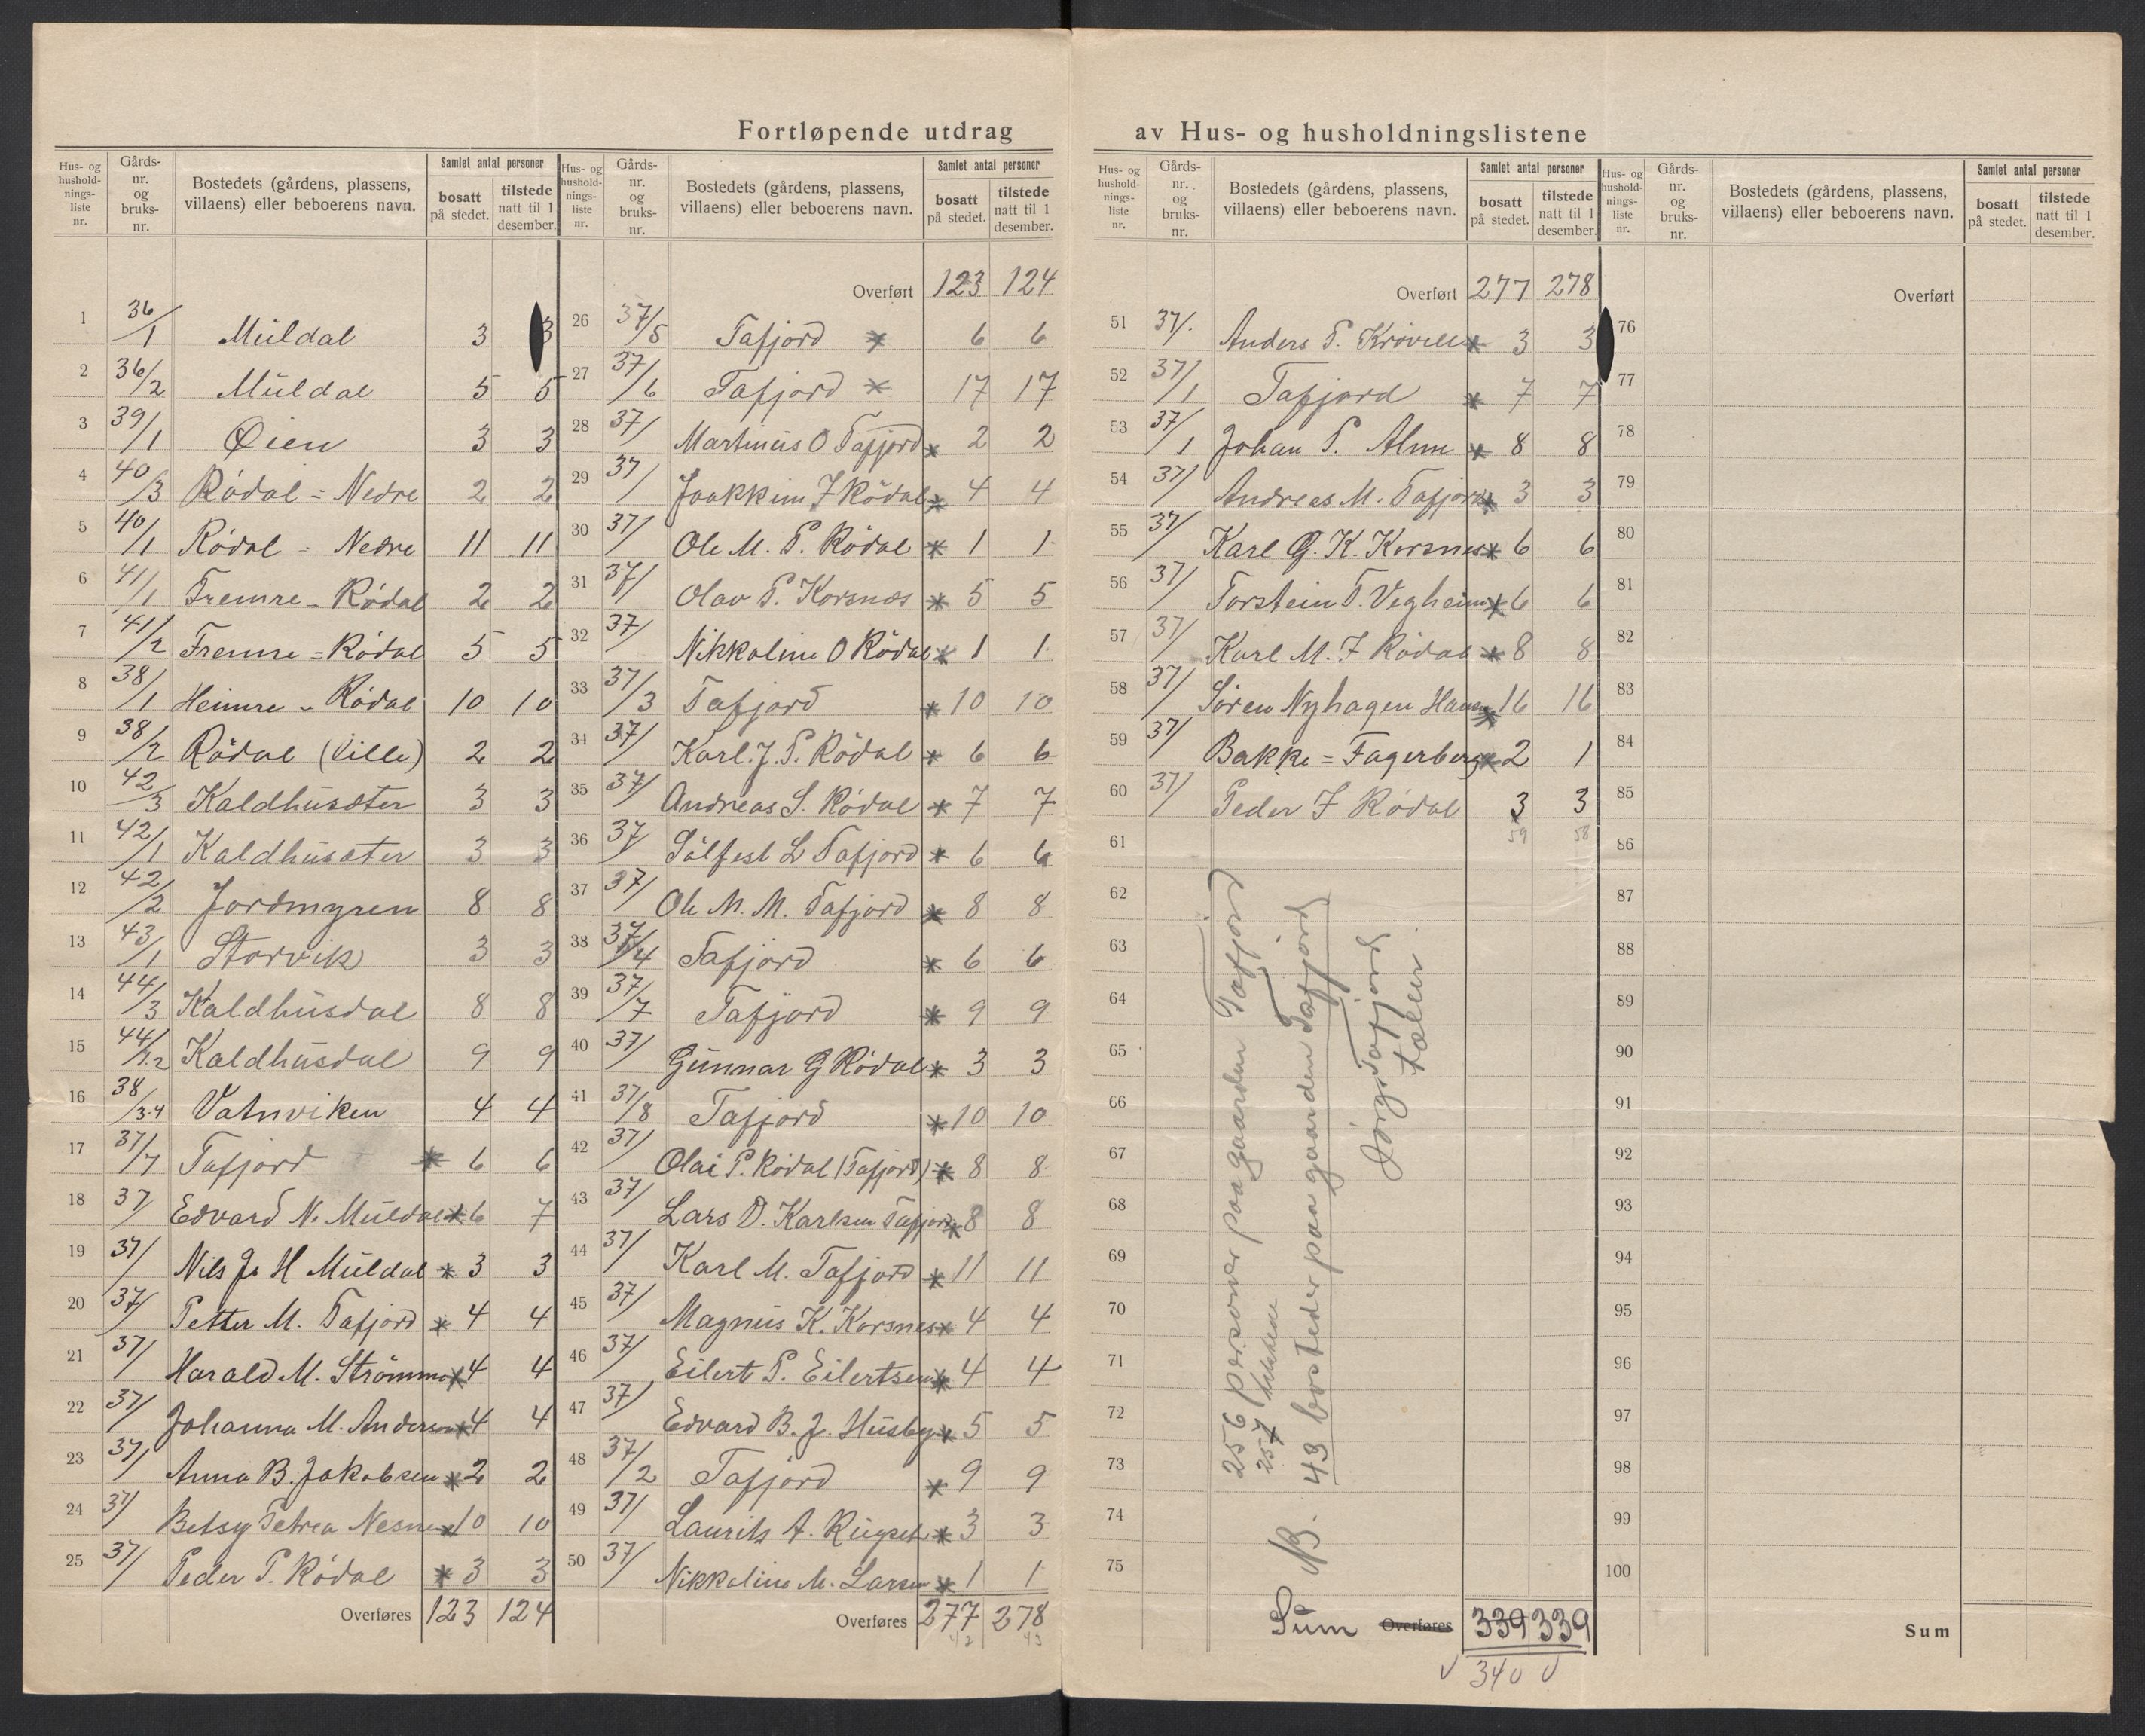 Fortløpende utdrag av Hus- og husholdningslistene
Hus- og husholdnings-liste nr. | Gårds-nr. og bruks-nr. | Bostedets (gårdens, plassens, villaens) eller beboerens navn. | Samlet antal personer | bosatt på stedet. | tilstede natt til 1 desember.
1 36/1 Muldal 3 3
2 36/2 Muldal 5 5
3 39/1 Øien 3 3
4 40/3 Rödal = Nedre 2 2
5 40/1 Rödal = Nedre 11 11
6 41/1 Fremre - Rödal 2 2
7 41/2 Fremre = Rödal 5 5
8 38/1 Heimre - Rödal 10 10
9 38/2 Rödal (Lille) 2 2
10 42/3 Kaldhusæter 3 3
11 42/1 Kaldhusæter 3 3
12 42/2 Jordmyren 8 8
13 43/1 Storvik 3 3
14 44/3 Kaldhusdal 8 8
15 44/1.2 Kaldhusdal 9 9
16 38/3.4 Vatnviken 4 4
17 37/7 Tafjord * 6 6
18 37/ Edvard N. Muldal * 6 7
19 37/ Nils J. H Muldal * 3 3
20 37/ Petter M. Tafjord * 4 4
21 37/ Harald M. Strömme * 4 4
22 37/ Johanna M. Andersen * 4 4
23 37/ Anna B. Jakobsen * 2 2
24 37/ Betsy Petrea Nesne * 10 10
25 37/ Peder P. Rödal * 3 3
Overføres 123 124
Hus- og husholdnings-liste nr. | Gårds-nr. og bruks-nr. | Bostedets (gårdens, plassens, villaens) eller beboerens navn. | Samlet antal personer | bosatt på stedet. | tilstede natt til 1 desember.
Overført 123 124
26 37/5 Tafjord * 6 6
27 37/6 Tafjord * 17 17
28 37/ Martinus O Tafjord * 2 2
29 37/ Joakkim J Rödal * 4 4
30 37/ Ole M. P. Rödal * 1 1
31 37/ Olav P. Korsnes * 5 5
32 37/ Nikkoline O Rödal * 1 1
33 37/3 Tafjord * 10 10
34 37/ Karl. J. P. Rödal * 6 6
35 37/ Andreas S. Rödal * 7 7
36 37/ Sölfest L Tafjord * 6 6
37 37/ Ole M. M. Tafjord * 8 8
38 37/4 Tafjord * 6 6
39 37/7 Tafjord * 9 9
40 37/ Gunnar G Rödal * 3 3
41 37/8 Tafjord * 10 10
42 37/ Olai P. Rödal (Tafjord) * 8 8
43 37/ Lars O. Karlsen Tafjord * 8 8
44 37/ Karl M. Tafjord * 11 11
45 37/ Magnus K. Korsnes * 4 4
46 37/ Eilert P. Eilertsen * 4 4
47 37/ Edvard B. J. Husby * 5 5
48 37/2 Tafjord * 9 9
49 37/ Laurits A. Rugset * 3 3
50 37/ Nikkoline M. Larsen * 1 1
Overføres 277 278
42 43
Hus- og husholdnings-liste nr. | Gårds-nr. og bruks-nr. | Bostedets (gårdens, plassens, villaens) eller beboerens navn. | Samlet antal personer | bosatt på stedet. | tilstede natt til 1 desember.
Overført 277 278
51 37/. Anders P. Krövell * 3 3
52 37/1 Tafjord * 7 7
53 37/1 Johan P. Alme * 8 8
54 37/ Andreas M. Tafjord * 3 3
55 37/ Karl G. K. Korsnes * 6 6
56 37/ Torstein T. Vegheim * 6 6
57 37/ Karl M. J Rödal * 8 8
58 37/ Sören Nyhagen Hansen * 16 16
59 37/ Bakke = Fagerberg * 2 1
60 37/ Peder J Rödal 3 3
59 58
61
62
63
64
65
66
67
68
69
70
71
72
73
74
75
NB. 256 personer paa gaarden Tafjord
257 tilstede
43 bosteder paa gaarden Tafjord
Jörg. Tafjord
tæller.
Sum Overføres 339 339
340
Hus- og husholdnings-liste nr. | Gårds-nr. og bruks-nr. | Bostedets (gårdens, plassens, villaens) eller beboerens navn. | Samlet antal personer | bosatt på stedet. | tilstede natt til 1 desember.
Overført
76
77
78
79
80
81
82
83
84
85
86
87
88
89
90
91
92
93
94
95
96
97
98
99
100
Sum